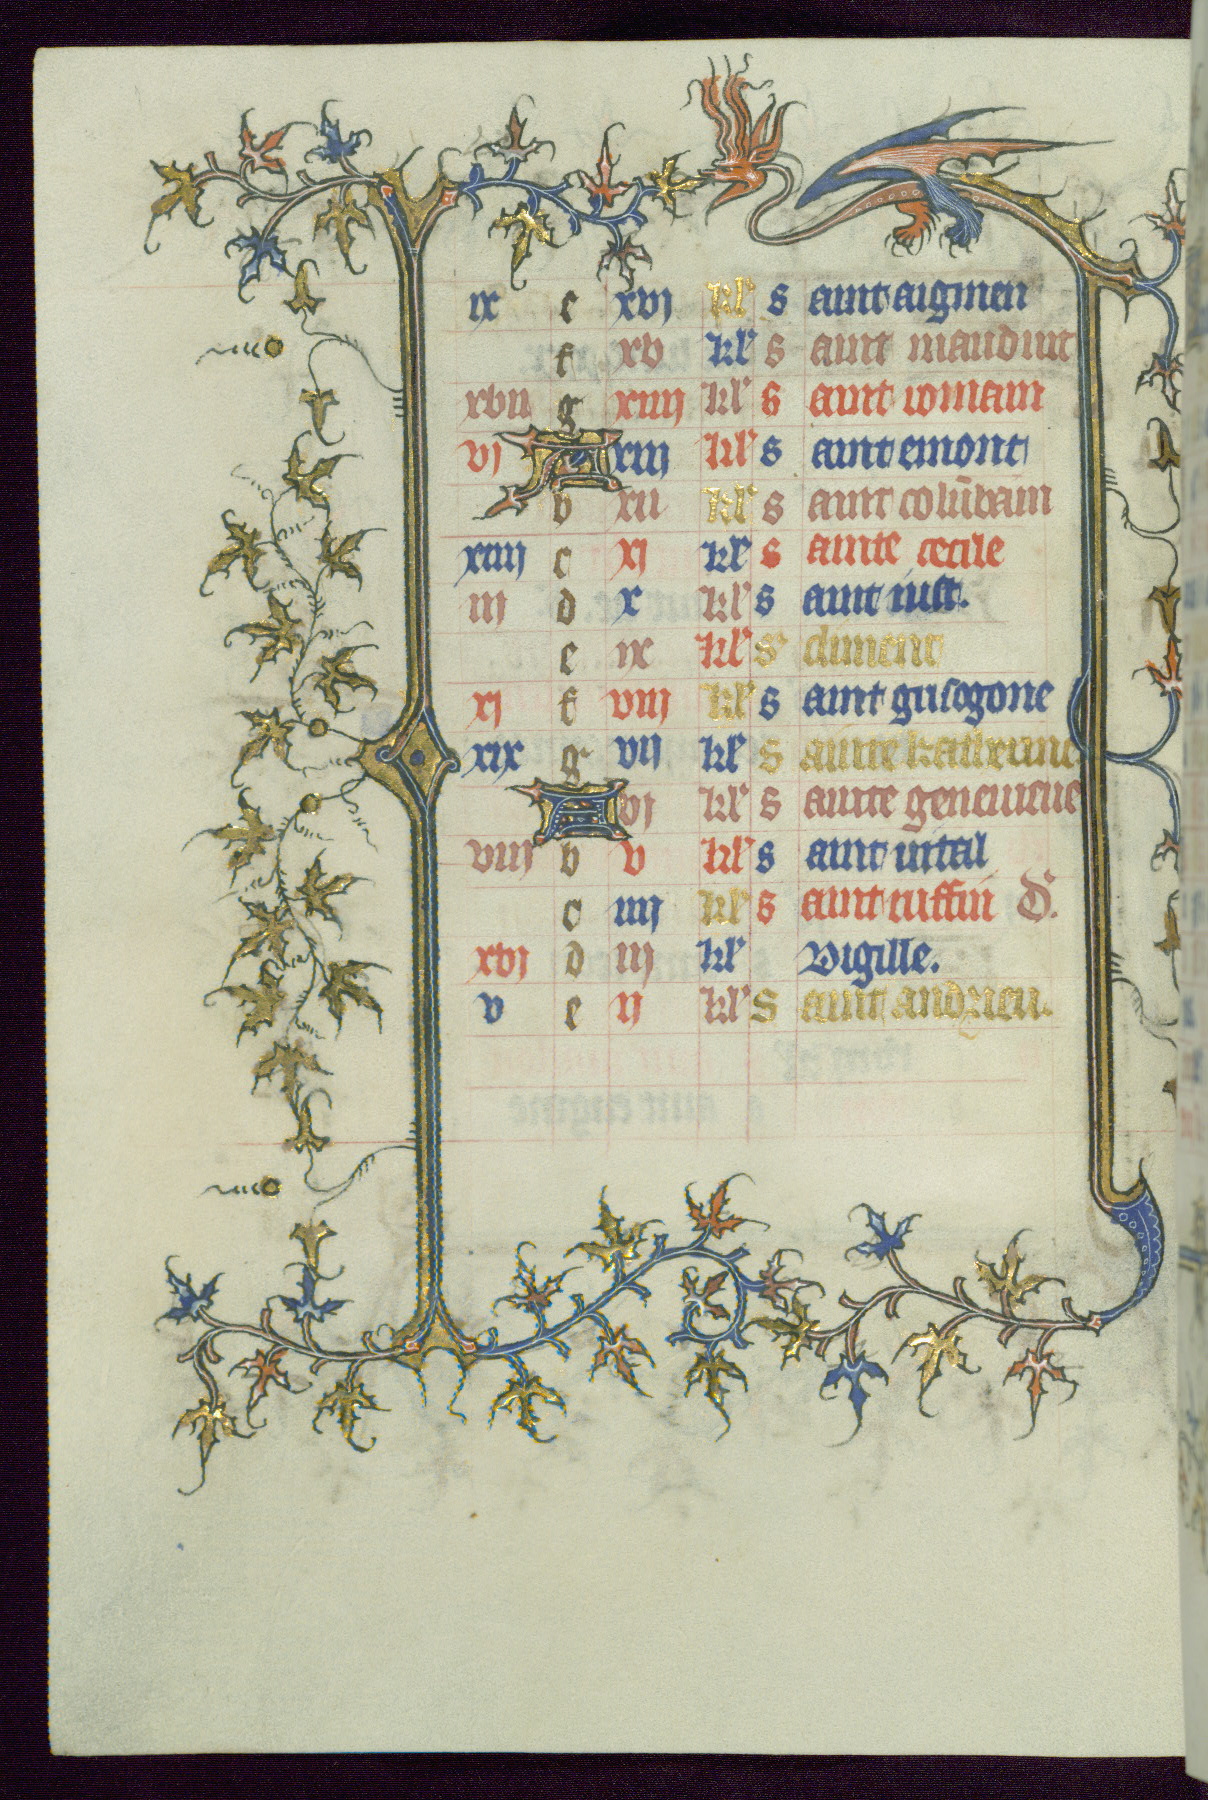 ix e xvj kl' s aint aignien
f xv kl' s aint maudint
xvii g xiiij kl' s aint romain
vj A xiij kl' s aint emont
b xii kl' s aint colūbain
xiiij c xj kl' s ainte cecile
iij d x kl' s aint iust.
e ix kl' s' climent
xj f viij kl' s aint grisogone
xix g vij kl' s ainte katherine
A vj kl' s ainte genevieve
viij b v kl' s aint vital
c iiij kl' s aint ruffin
xvj d iij kl' Vigille.
v e ij kl' S aint andrieu.